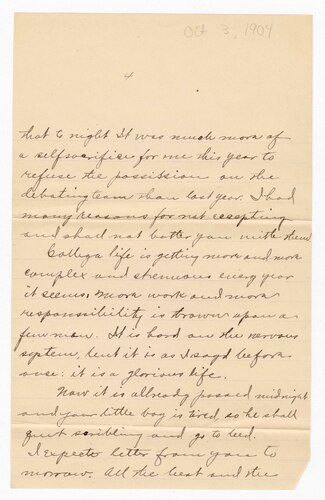 Oct 3, 1904
4
that to night It was much more of
a selfsacrifice for me this year to
refuse the possission on the
debating team than last year. I had
many reasons for not accepting
and shal not bother you with them
College life is getting more and more
complex and strenuous every year
it seems; more work and more
responsibility is thrown upon a
few man. It is hard on the nervous
system, but it is as I sayd before
once: it is a glorious life.
Now it is allready passed midnight
and your little boy is tired, so he shall
quit scribling and go to bed.
I expecte letter from you to
morrow. All the best and the